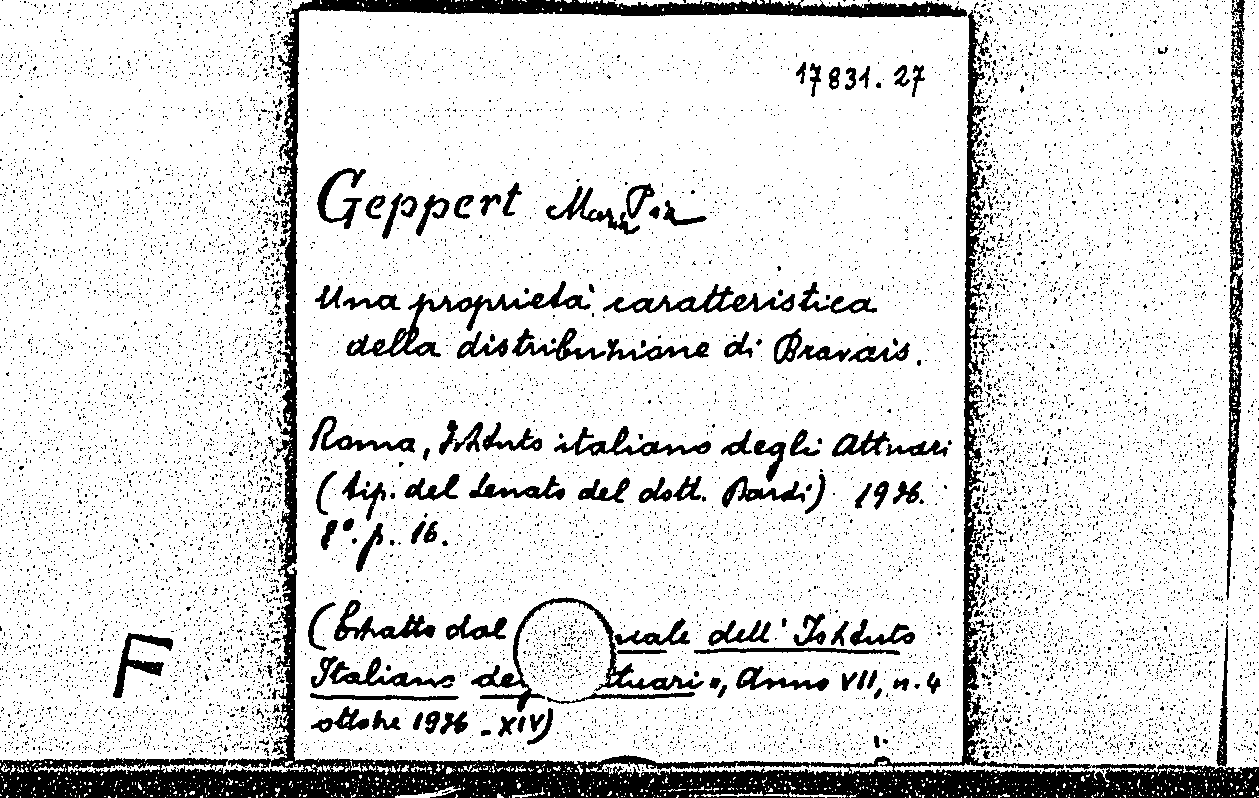 17831.27
Geppert Maria Pia
Una proprietà caratteristica
della distribuzione di Bravais.
Roma, Istituto italiano degli Attuari
(tip. del Senato del dott. Bardi) 1936.
8°. p. 16.
(Estratto dal nale dell' Istituto
Italiano deg tuari », Anno VII, n. 4
ottobre 1936 - XIV)
F